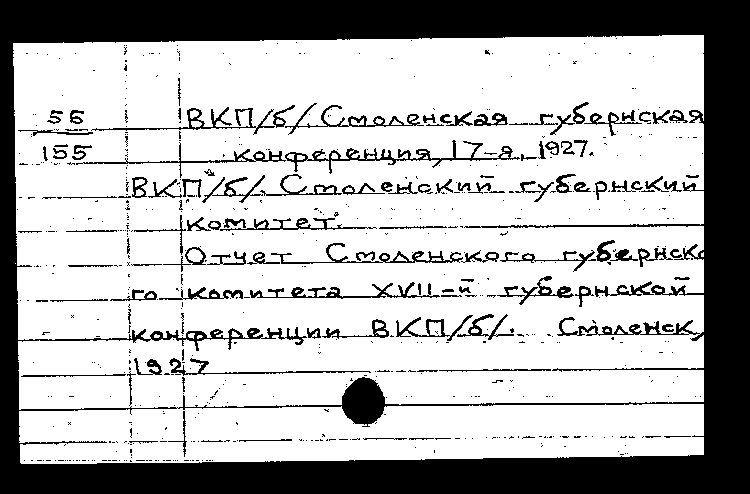 56 ВКП/б/. Смоленская губернская
155 конференция, 17-я, 1927.
ВКП/б/. Смоленский губернский
комитет.
Отчет Смоленского губернско
го комитета XVII-й губернской
конференции ВКП/б/. Смоленск,
1927